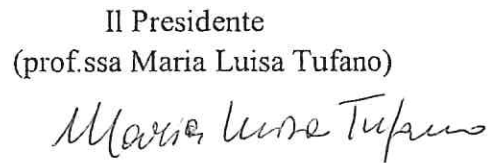 Il Presidente
(prof.ssa Maria Luisa Tufano)
Maria Luisa Tufano